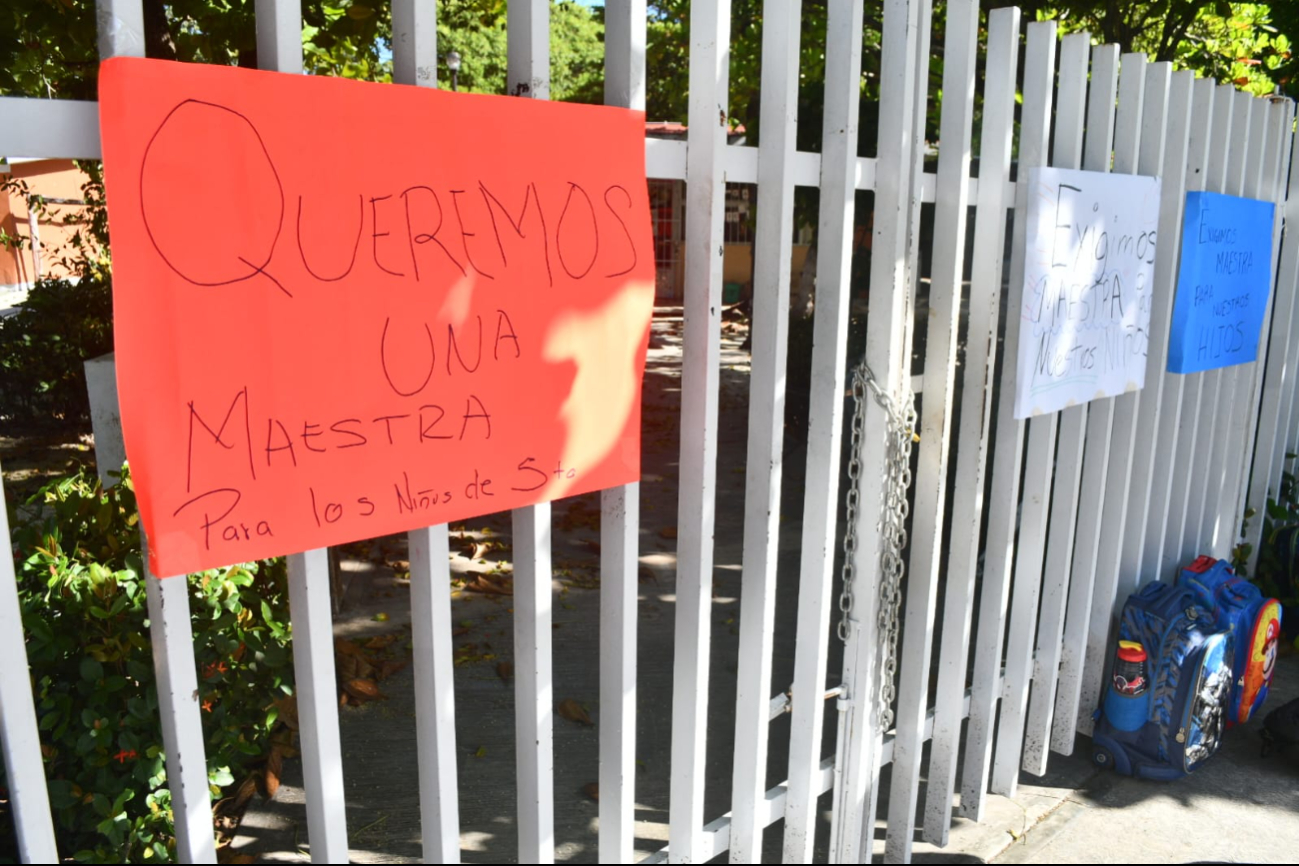 QUEREMOS
UNA
MAESTRA
Para los Niños de 5to
Exigimos
MAESTRA PARA
NUESTROS NIÑOS
EXIGIMOS
MAESTRA
PARA NUESTROS
HIJOS